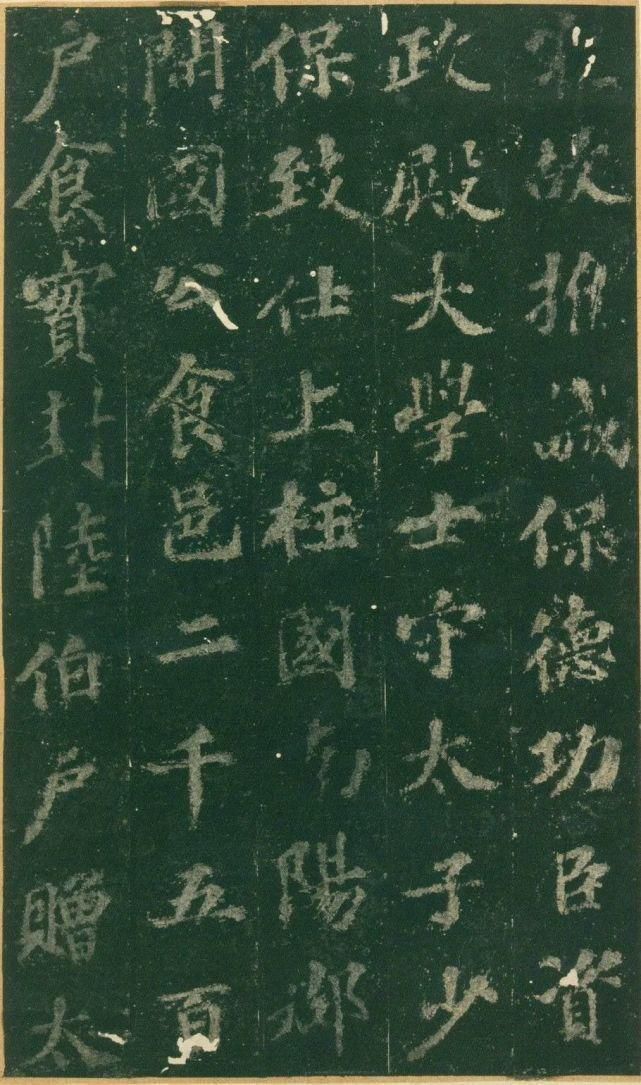 故推誠保德功臣資
政殿大學士守太子少
保致仕上柱國陽郡
開國公食邑二千五百
户食實封陸伯户贈太